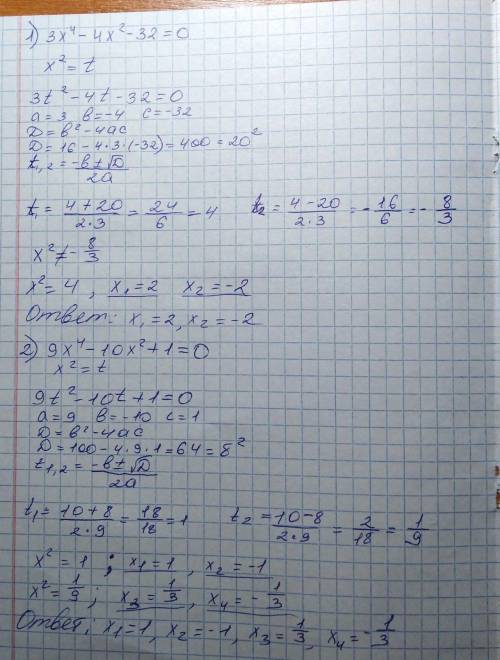 1) 3x⁴ - 4x² - 32 = 0
x² = t
3t² - 4t - 32 = 0
a = 3 в = -4 c = -32
D = в² - 4ac
D = 16 - 4·3·(-32) = 400 = 20²
t₁,₂ = (-в ± √D)/2a
t₁ = (4 + 20)/(2·3) = 24/6 = 4 t₂ = (4 - 20)/(2·3) = -16/6 = -8/3
x² ≠ -8/3
x² = 4, x₁ = 2 x₂ = -2
Ответ: x₁ = 2, x₂ = -2
2) 9x⁴ - 10x² + 1 = 0
x² = t
9t² - 10t + 1 = 0
a = 9 в = -10 c = 1
D = в² - 4ac
D = 100 - 4·9·1 = 64 = 8²
t₁,₂ = (-в ± √D)/2a
t₁ = (10 + 8)/(2·9) = 18/18 = 1 t₂ = (10 - 8)/(2·9) = 2/18 = 1/9
x² = 1 ; x₁ = 1, x₂ = -1
x² = 1/9 ; x₃ = 1/3, x₄ = -1/3
Ответ: x₁ = 1, x₂ = -1, x₃ = 1/3, x₄ = -1/3